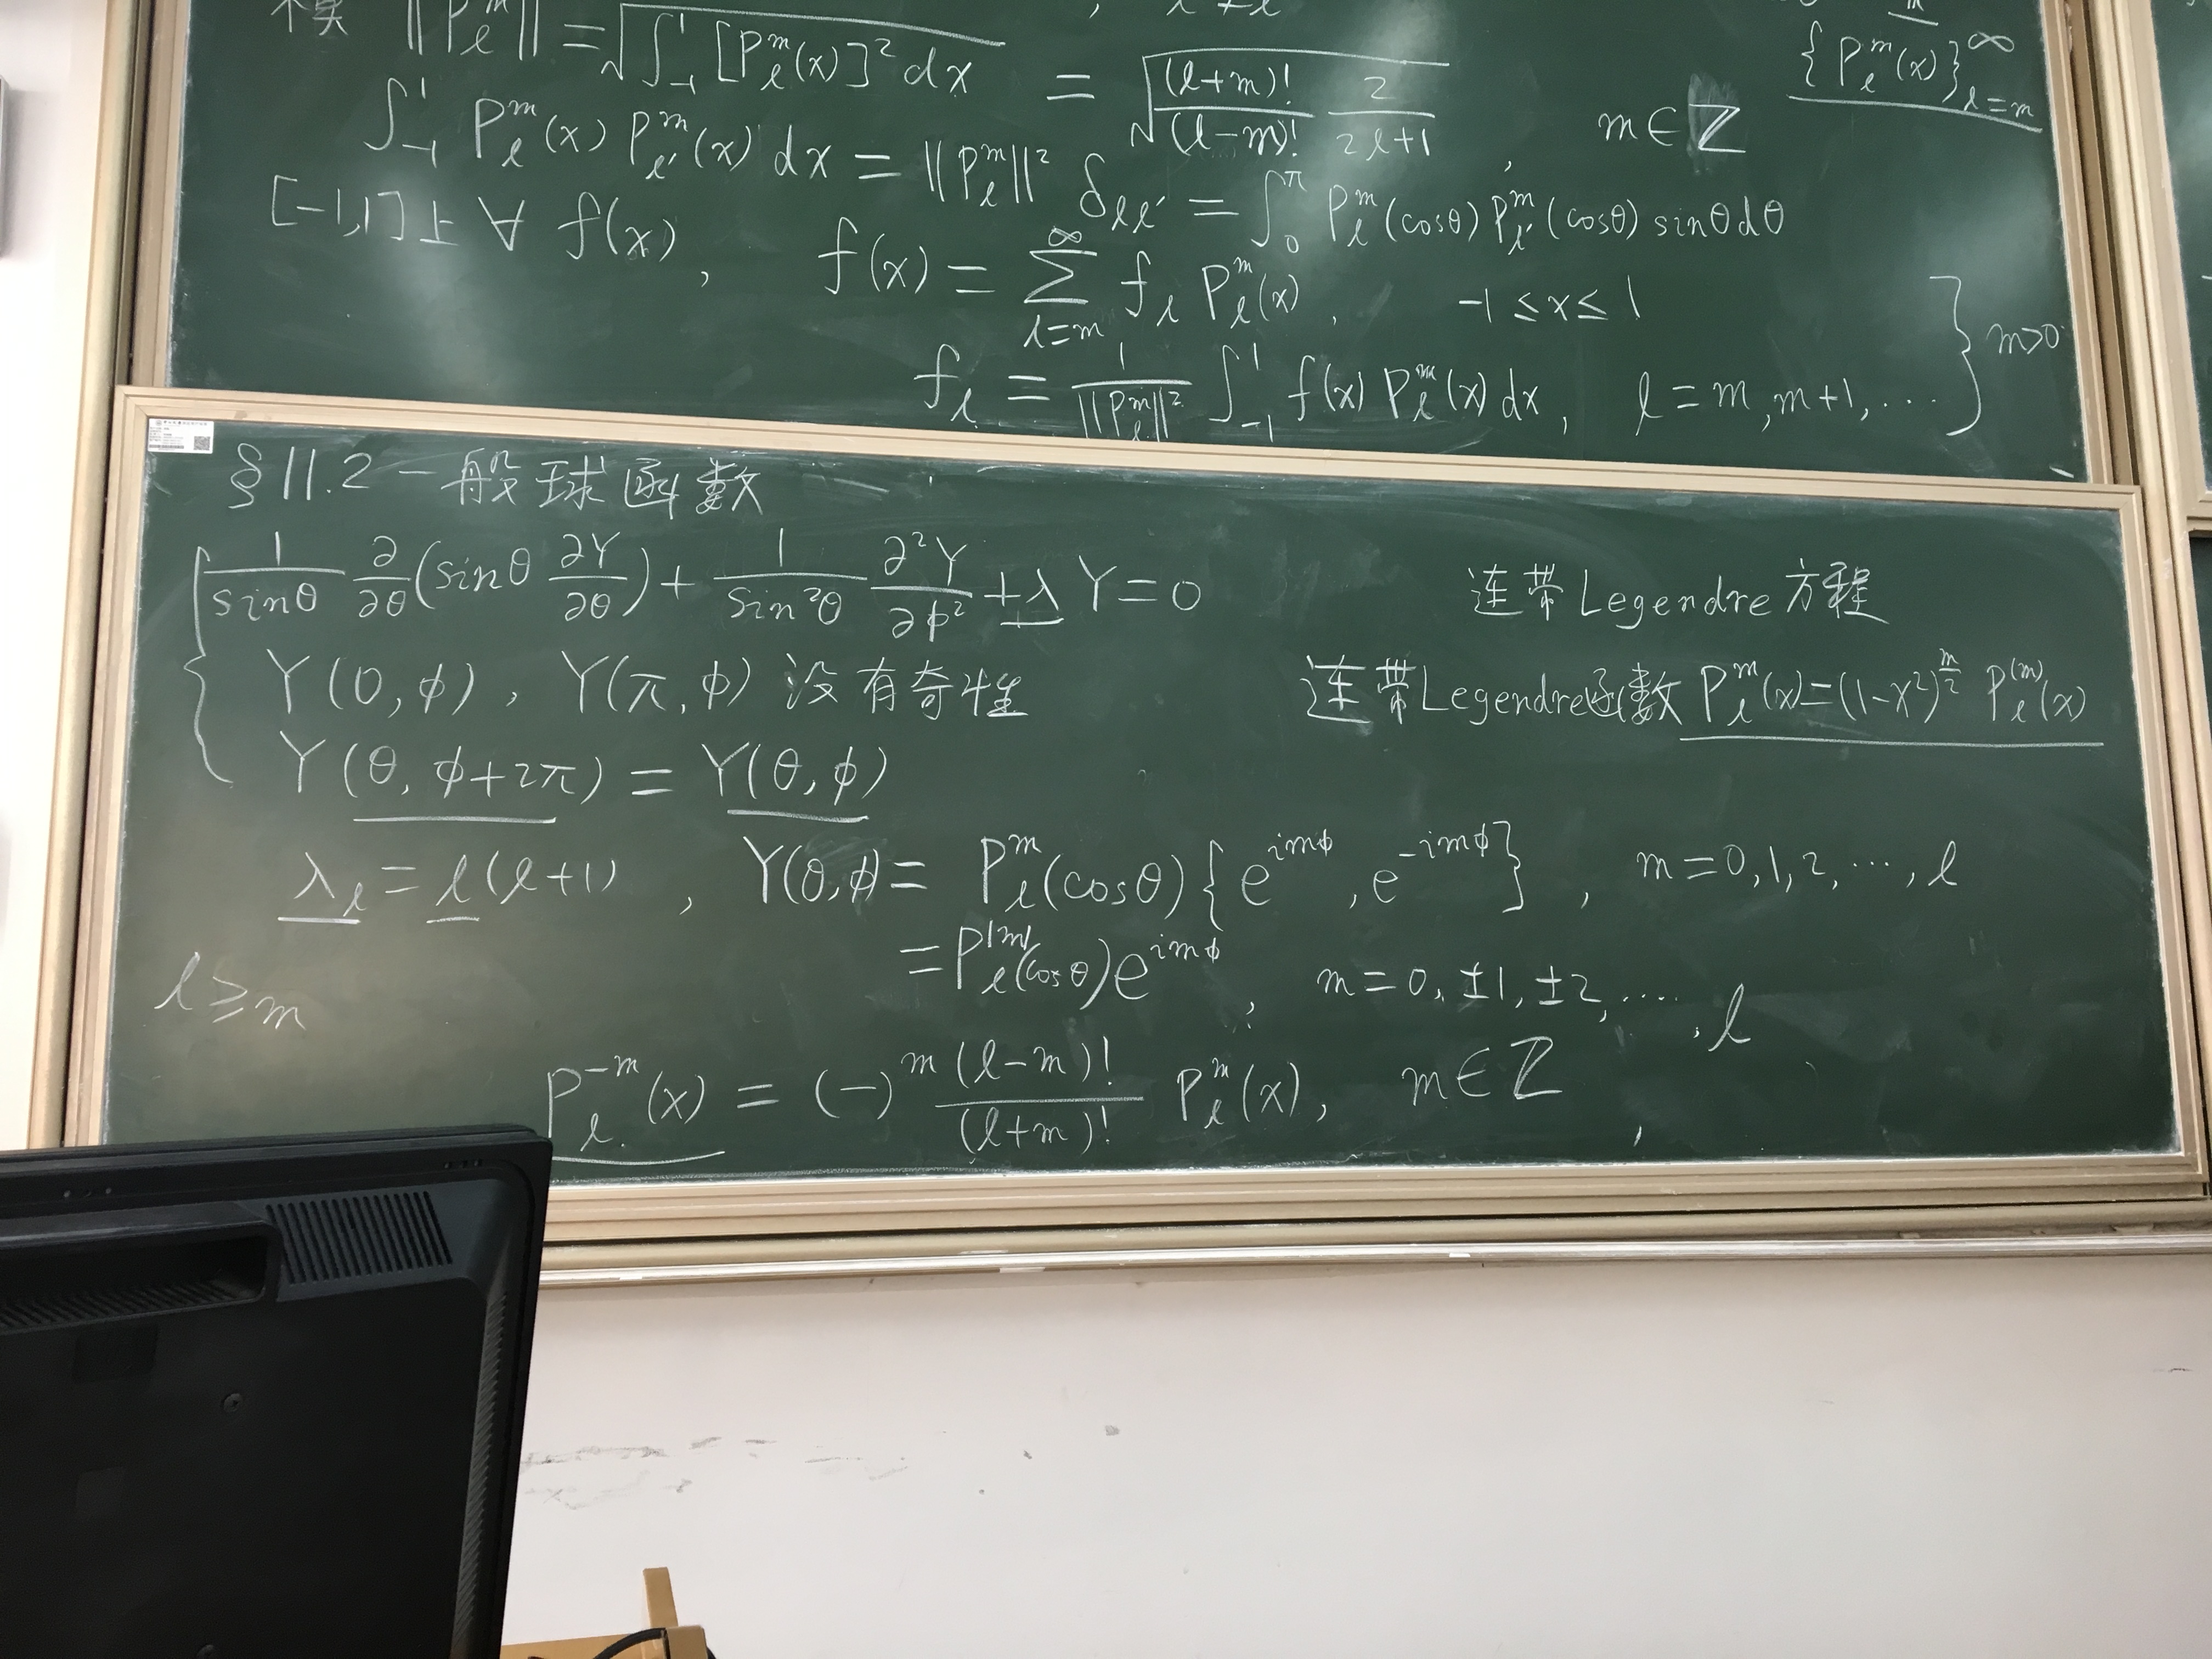 ‖P_l^m‖ = √(∫_{-1}^{1} [P_l^m(x)]² dx) = √((l+m)!/(l-m)! 2/(2l+1)), m∈ℤ
{P_l^m(x)}_{l=m}^∞
∫_{-1}^{1} P_l^m(x) P_{l'}^m(x) dx = ‖P_l^m‖² δ_{ll'} = ∫_0^π P_l^m(cosθ) P_{l'}^m(cosθ) sinθ dθ
[-1,1]上 ∀ f(x), f(x) = Σ_{l=m}^∞ f_l P_l^m(x), -1 ≤ x ≤ 1
f_l = 1/‖P_l^m‖² ∫_{-1}^{1} f(x) P_l^m(x) dx, l = m, m+1, ··· } m>0
§11.2 一般球函数
1/sinθ ∂/∂θ (sinθ ∂Y/∂θ) + 1/sin²θ ∂²Y/∂ϕ² + λY = 0
连带Legendre方程
Y(0,ϕ), Y(π,ϕ) 没有奇性
连带Legendre函数 P_l^m(x) = (1-x²)^{m/2} P_l^{(m)}(x)
Y(θ, ϕ+2π) = Y(θ, ϕ)
λ_l = l(l+1), Y(θ,ϕ) = P_l^m(cosθ) {e^{imϕ}, e^{-imϕ}}, m = 0,1,2,···, l
= P_l^{|m|}(cosθ) e^{imϕ}, m = 0, ±1, ±2, ····, l
l ≥ m
P_l^{-m}(x) = (-)^m (l-m)!/(l+m)! P_l^m(x), m∈ℤ